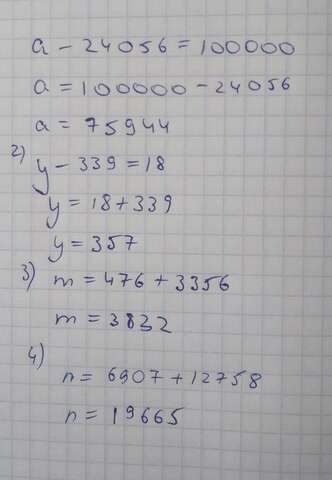 a - 24056 = 100000
a = 100000 - 24056
a = 75944
2) y - 339 = 18
y = 18 + 339
y = 357
3) m = 476 + 3356
m = 3832
4)
n = 6907 + 12758
n = 19665